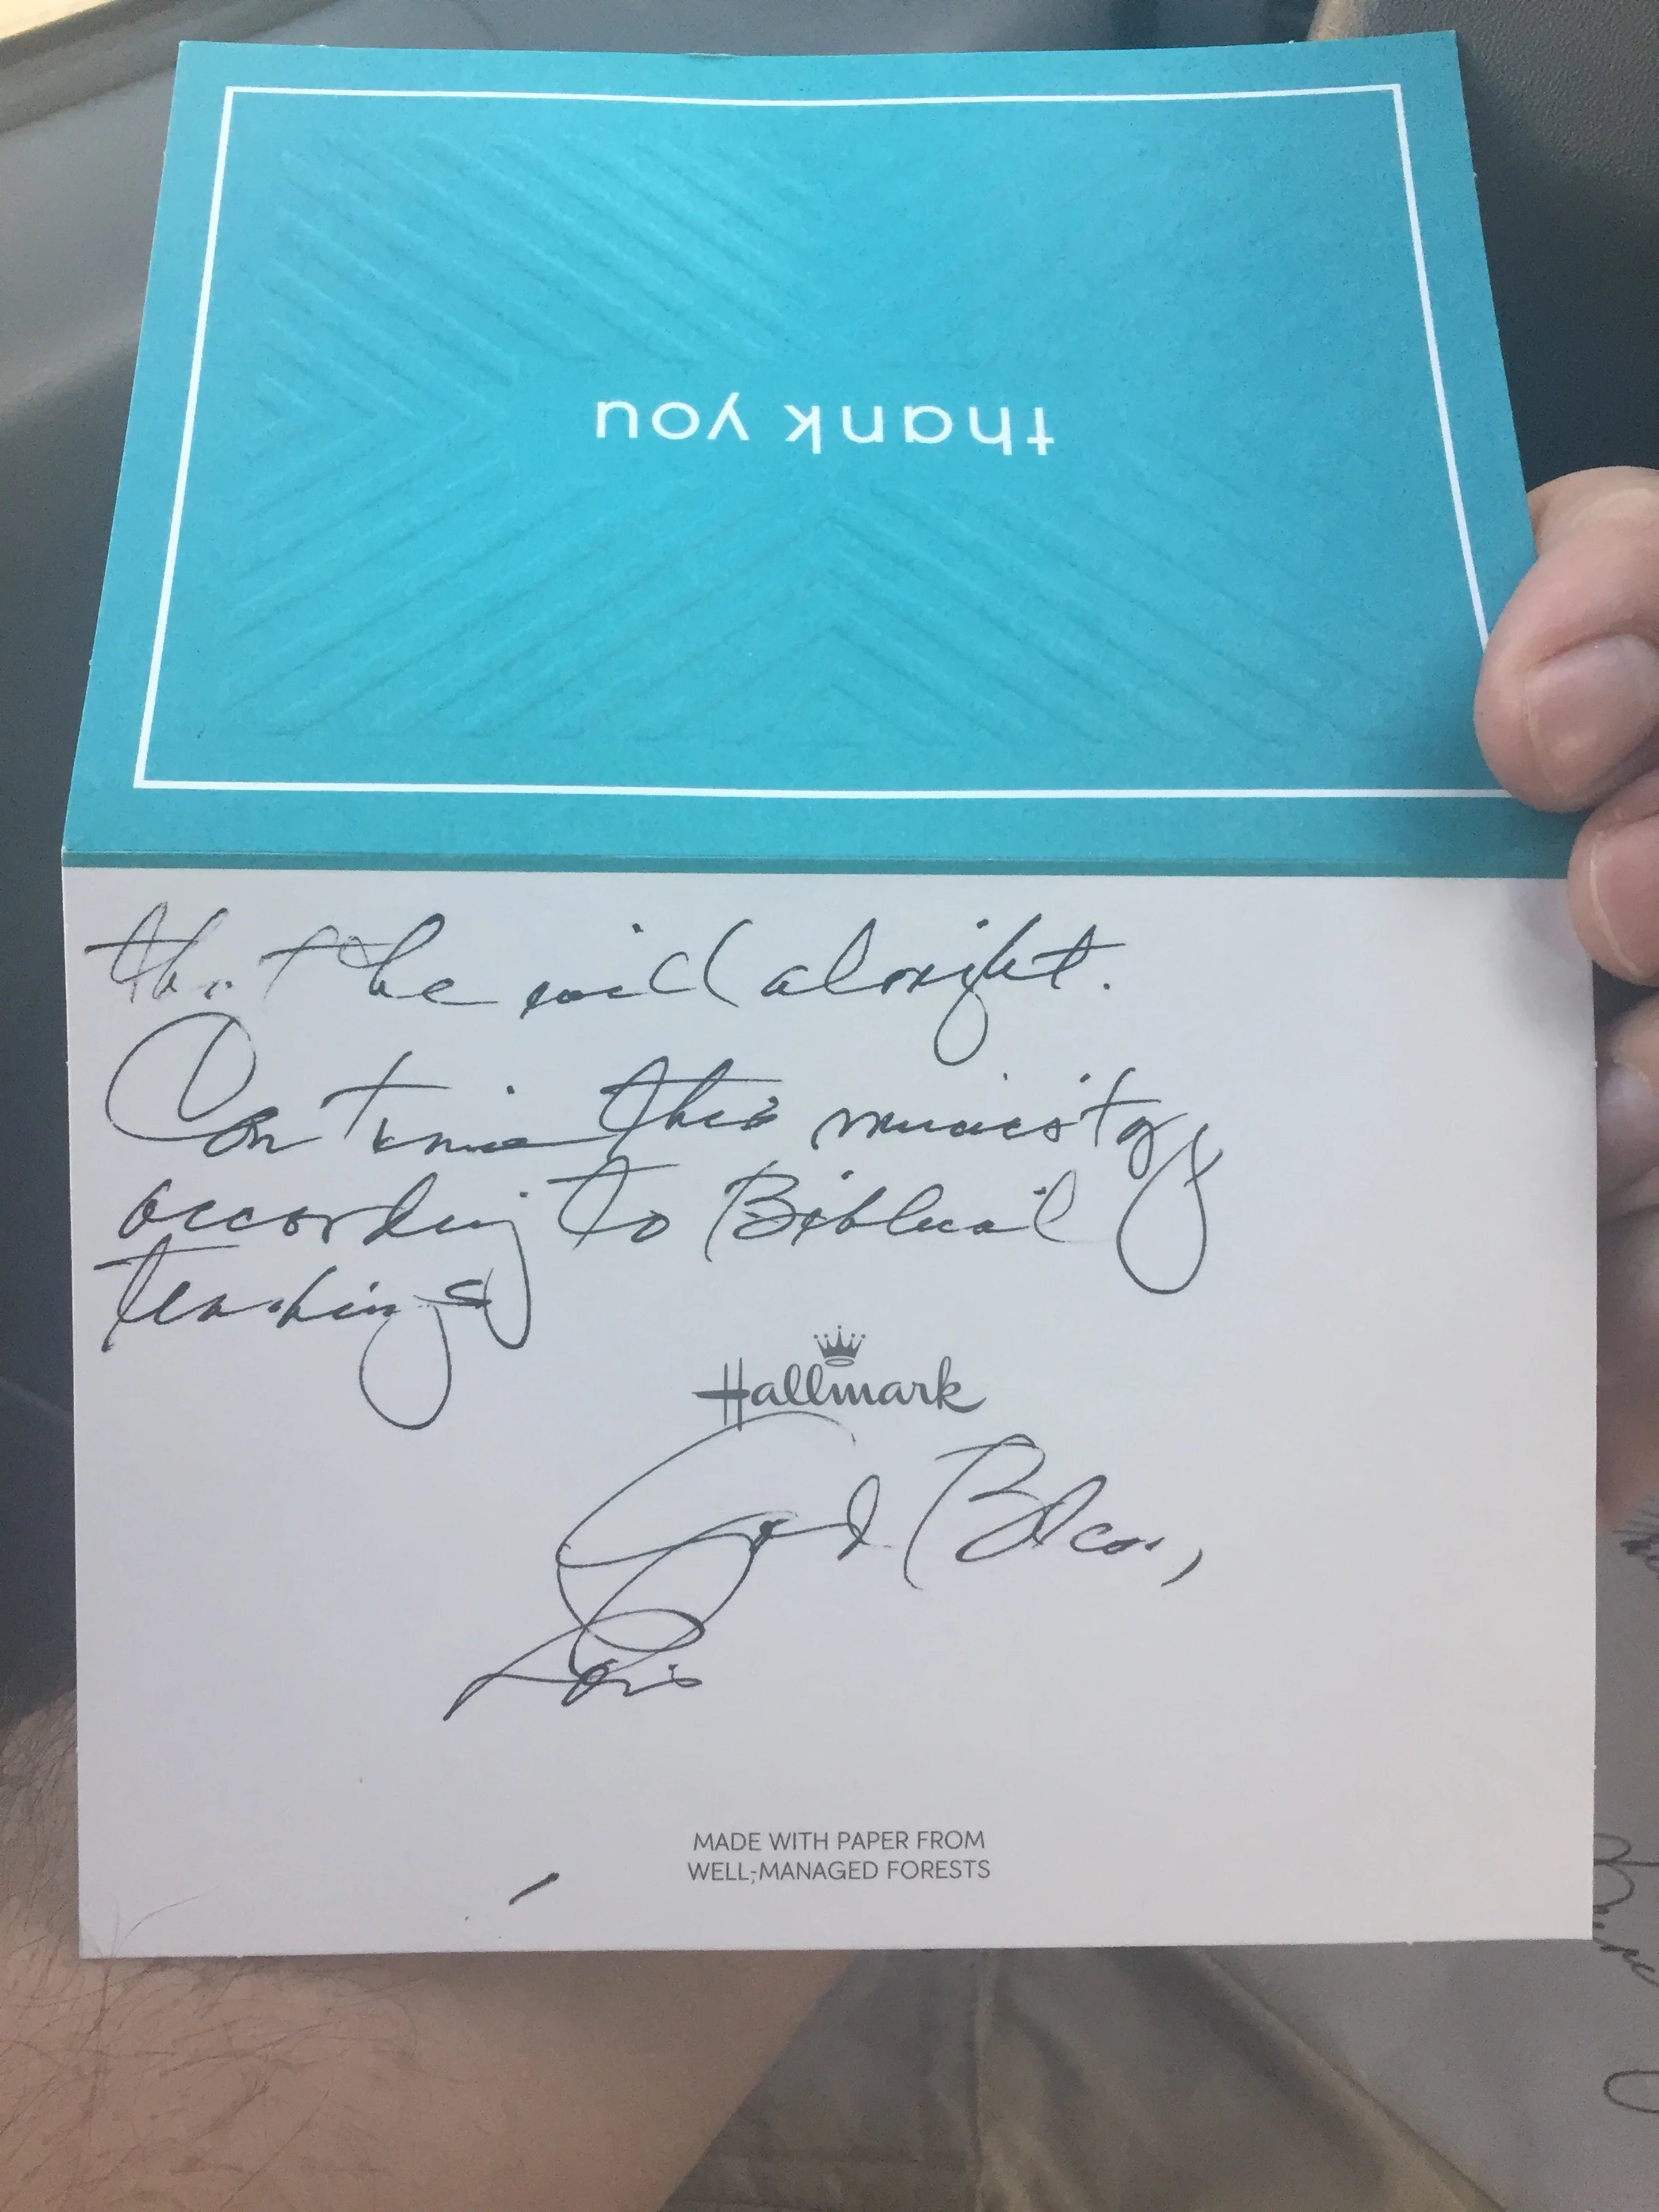 thank you
that he said alright.
Continue this ministry
according to Biblical
teachings
Hallmark
God Bless,
Lois
MADE WITH PAPER FROM
WELL-MANAGED FORESTS